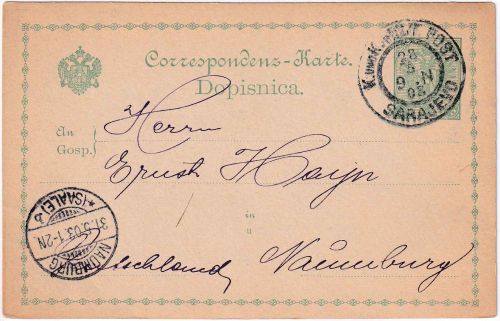 Correspondenz-Karte.
Dopisnica.
K. und K. MILIT. POST
28
5
9 N
03
SARAJEVO
An
Gosp.
Herrn
Ernst Hayn
in
u
Naumburg
Deutschland
NAUMBURG
*(SAALE)
31.5.03.1-2N